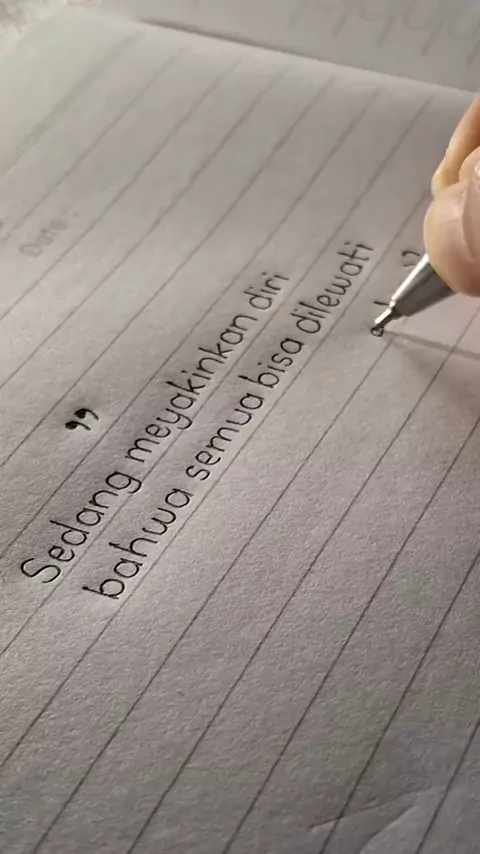 Date:
"
Sedang meyakinkan diri
bahwa semua bisa dilewati